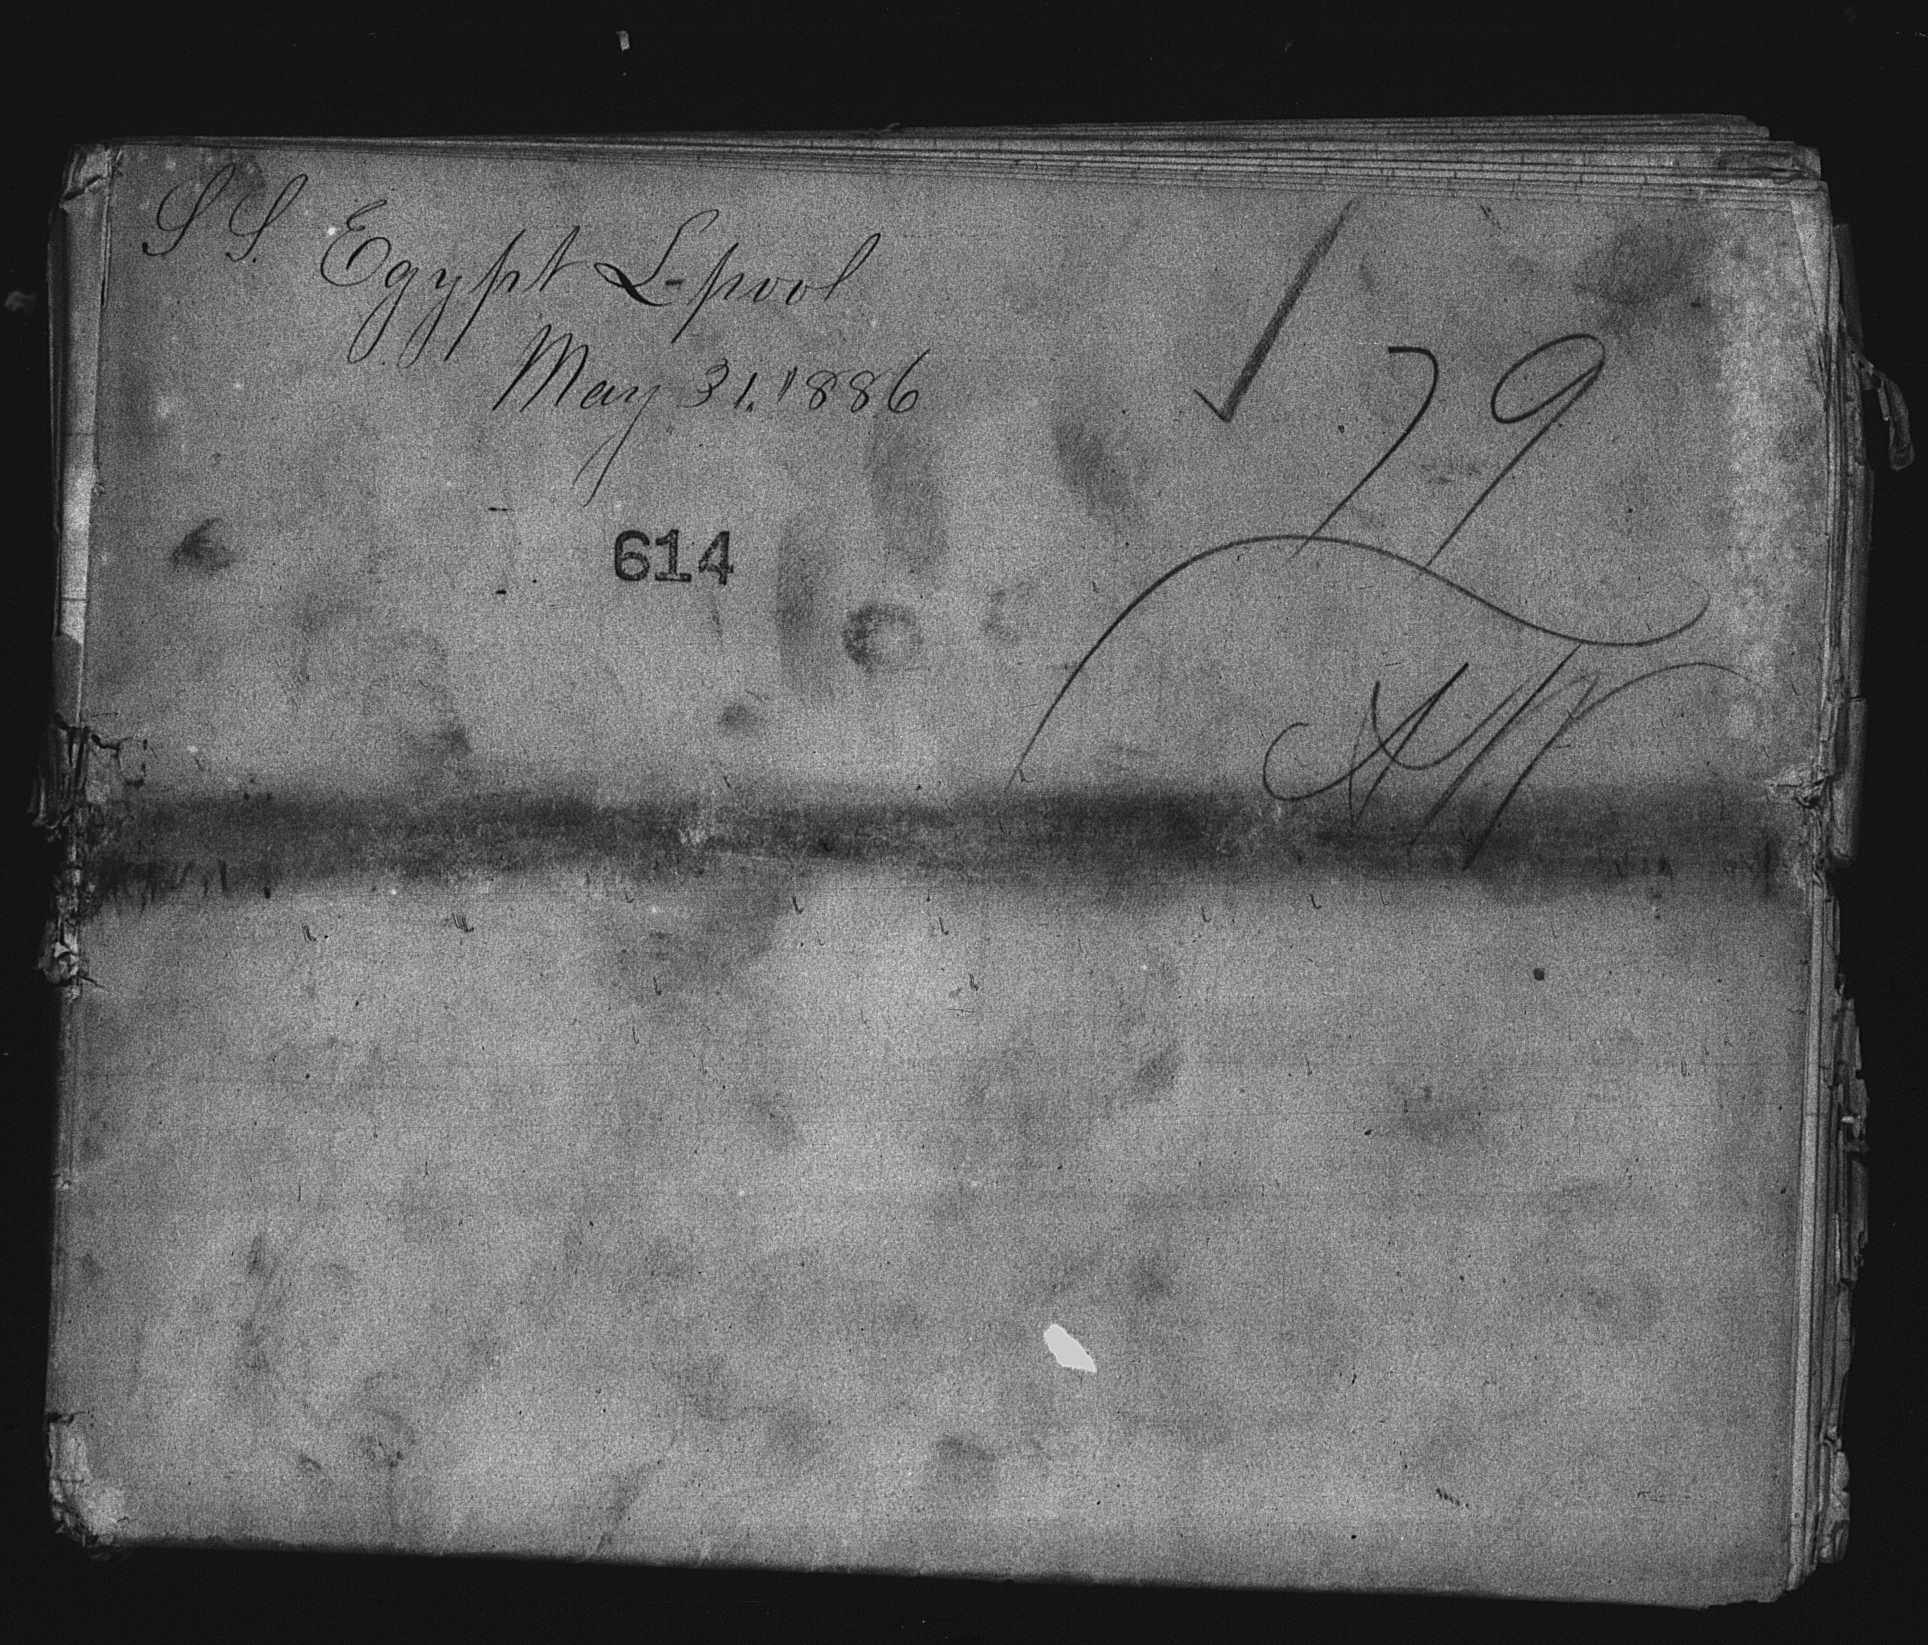 SS Egypt L-pool
May 31. 1886
79
614